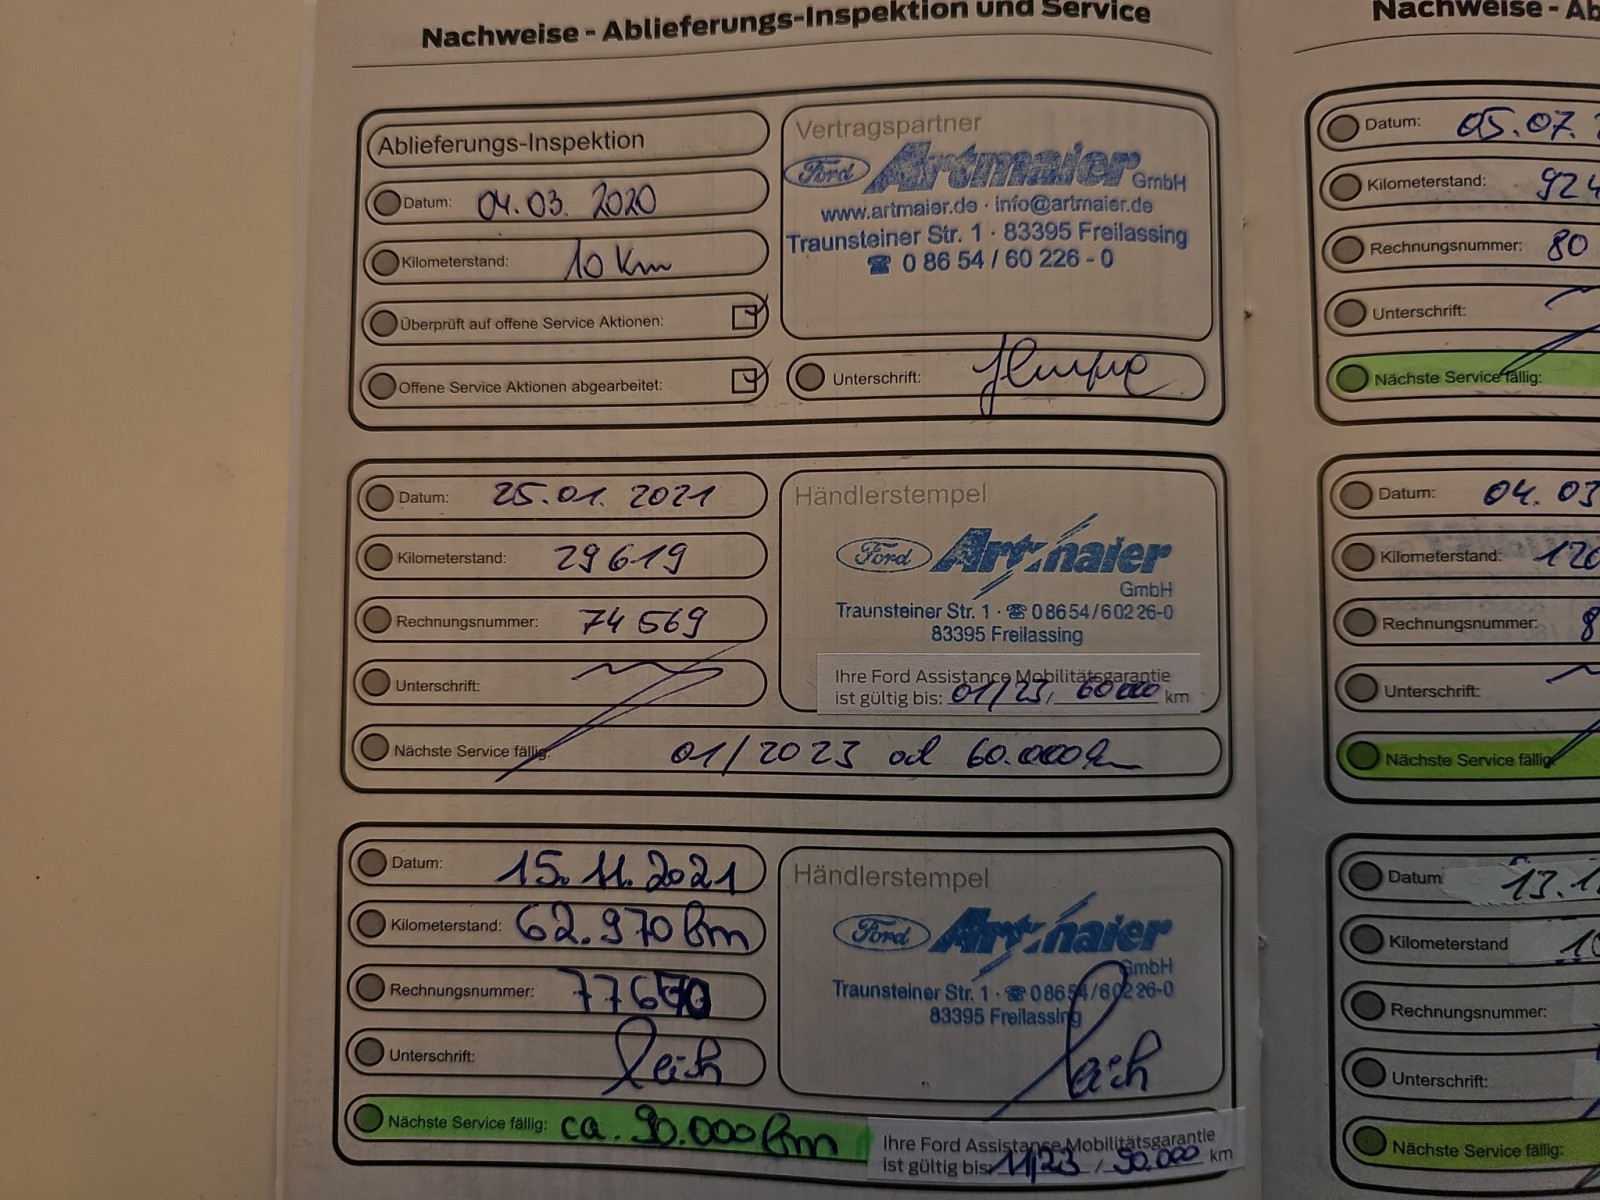 Nachweise - Ablieferungs-Inspektion und Service
Ablieferungs-Inspektion
Datum: 04.03. 2020
Kilometerstand: 10 km
Überprüft auf offene Service Aktionen:
Offene Service Aktionen abgearbeitet:
Vertragspartner
Ford Artmaier GmbH
www.artmaier.de · info@artmaier.de
Traunsteiner Str. 1 · 83395 Freilassing
☎ 0 86 54 / 60 226 - 0
Unterschrift:
Datum: 25.01. 2021
Kilometerstand: 29619
Rechnungsnummer: 74569
Unterschrift:
Händlerstempel
Ford Artmaier
GmbH
Traunsteiner Str. 1 · ☎ 08654/60226-0
83395 Freilassing
Ihre Ford Assistance Mobilitätsgarantie
ist gültig bis: 01/23, 60000 km
Nächste Service fällig: 01/2023 od 60.000km
Datum: 15.11.2021
Kilometerstand: 62.970km
Rechnungsnummer:
Unterschrift:
Händlerstempel
Ford Artmaier
GmbH
Traunsteiner Str. 1 · ☎ 08654/60226-0
83395 Freilassing
Nächste Service fällig: ca. 90.000km
Ihre Ford Assistance Mobilitätsgarantie
ist gültig bis: 11/23 / 90.000 km
Nachweise - Ab
Datum: 05.07.
Kilometerstand: 924
Rechnungsnummer: 80
Unterschrift:
Nächste Service fällig:
Datum: 04. 03
Kilometerstand: 120
Rechnungsnummer: 8
Unterschrift:
Nächste Service fällig
Datum 13.1
Kilometerstand 10
Rechnungsnummer:
Unterschrift:
Nächste Service fällig: